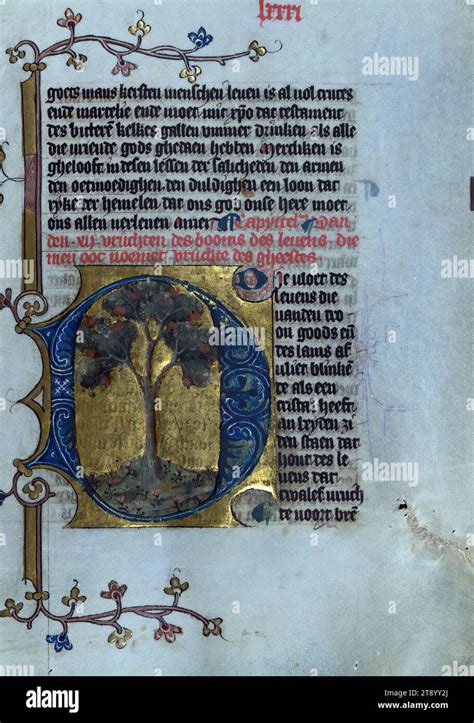 lxxxi
goets mans kersten menschen leuen is al vol cruces
ende martelie ende moet mit xpo dat testament
des bittere kelkes gallen ymmer drinken als alle
die vriende gods ghedaen hebben Merckken is
gheloost in desen lessen der salicheden den armen
den oetmoedighen den duldighen een loon dat
rijke der hemelen dat ons god onse here moet
ons allen verlenen amen Capyttel Van
den xij vruchten des booms des leuens die
men ooc noemet vruchte des gheestes
Die vloet des
leuens die
vanden tro
on goods en
des lams af
blinke
de als een
cristal heeft
an beyden zi
den staen dat
hout des le
uens dat
twalef vruch
te voort bre
alamy
www.alamy.com
Image ID: 2T8YY2J